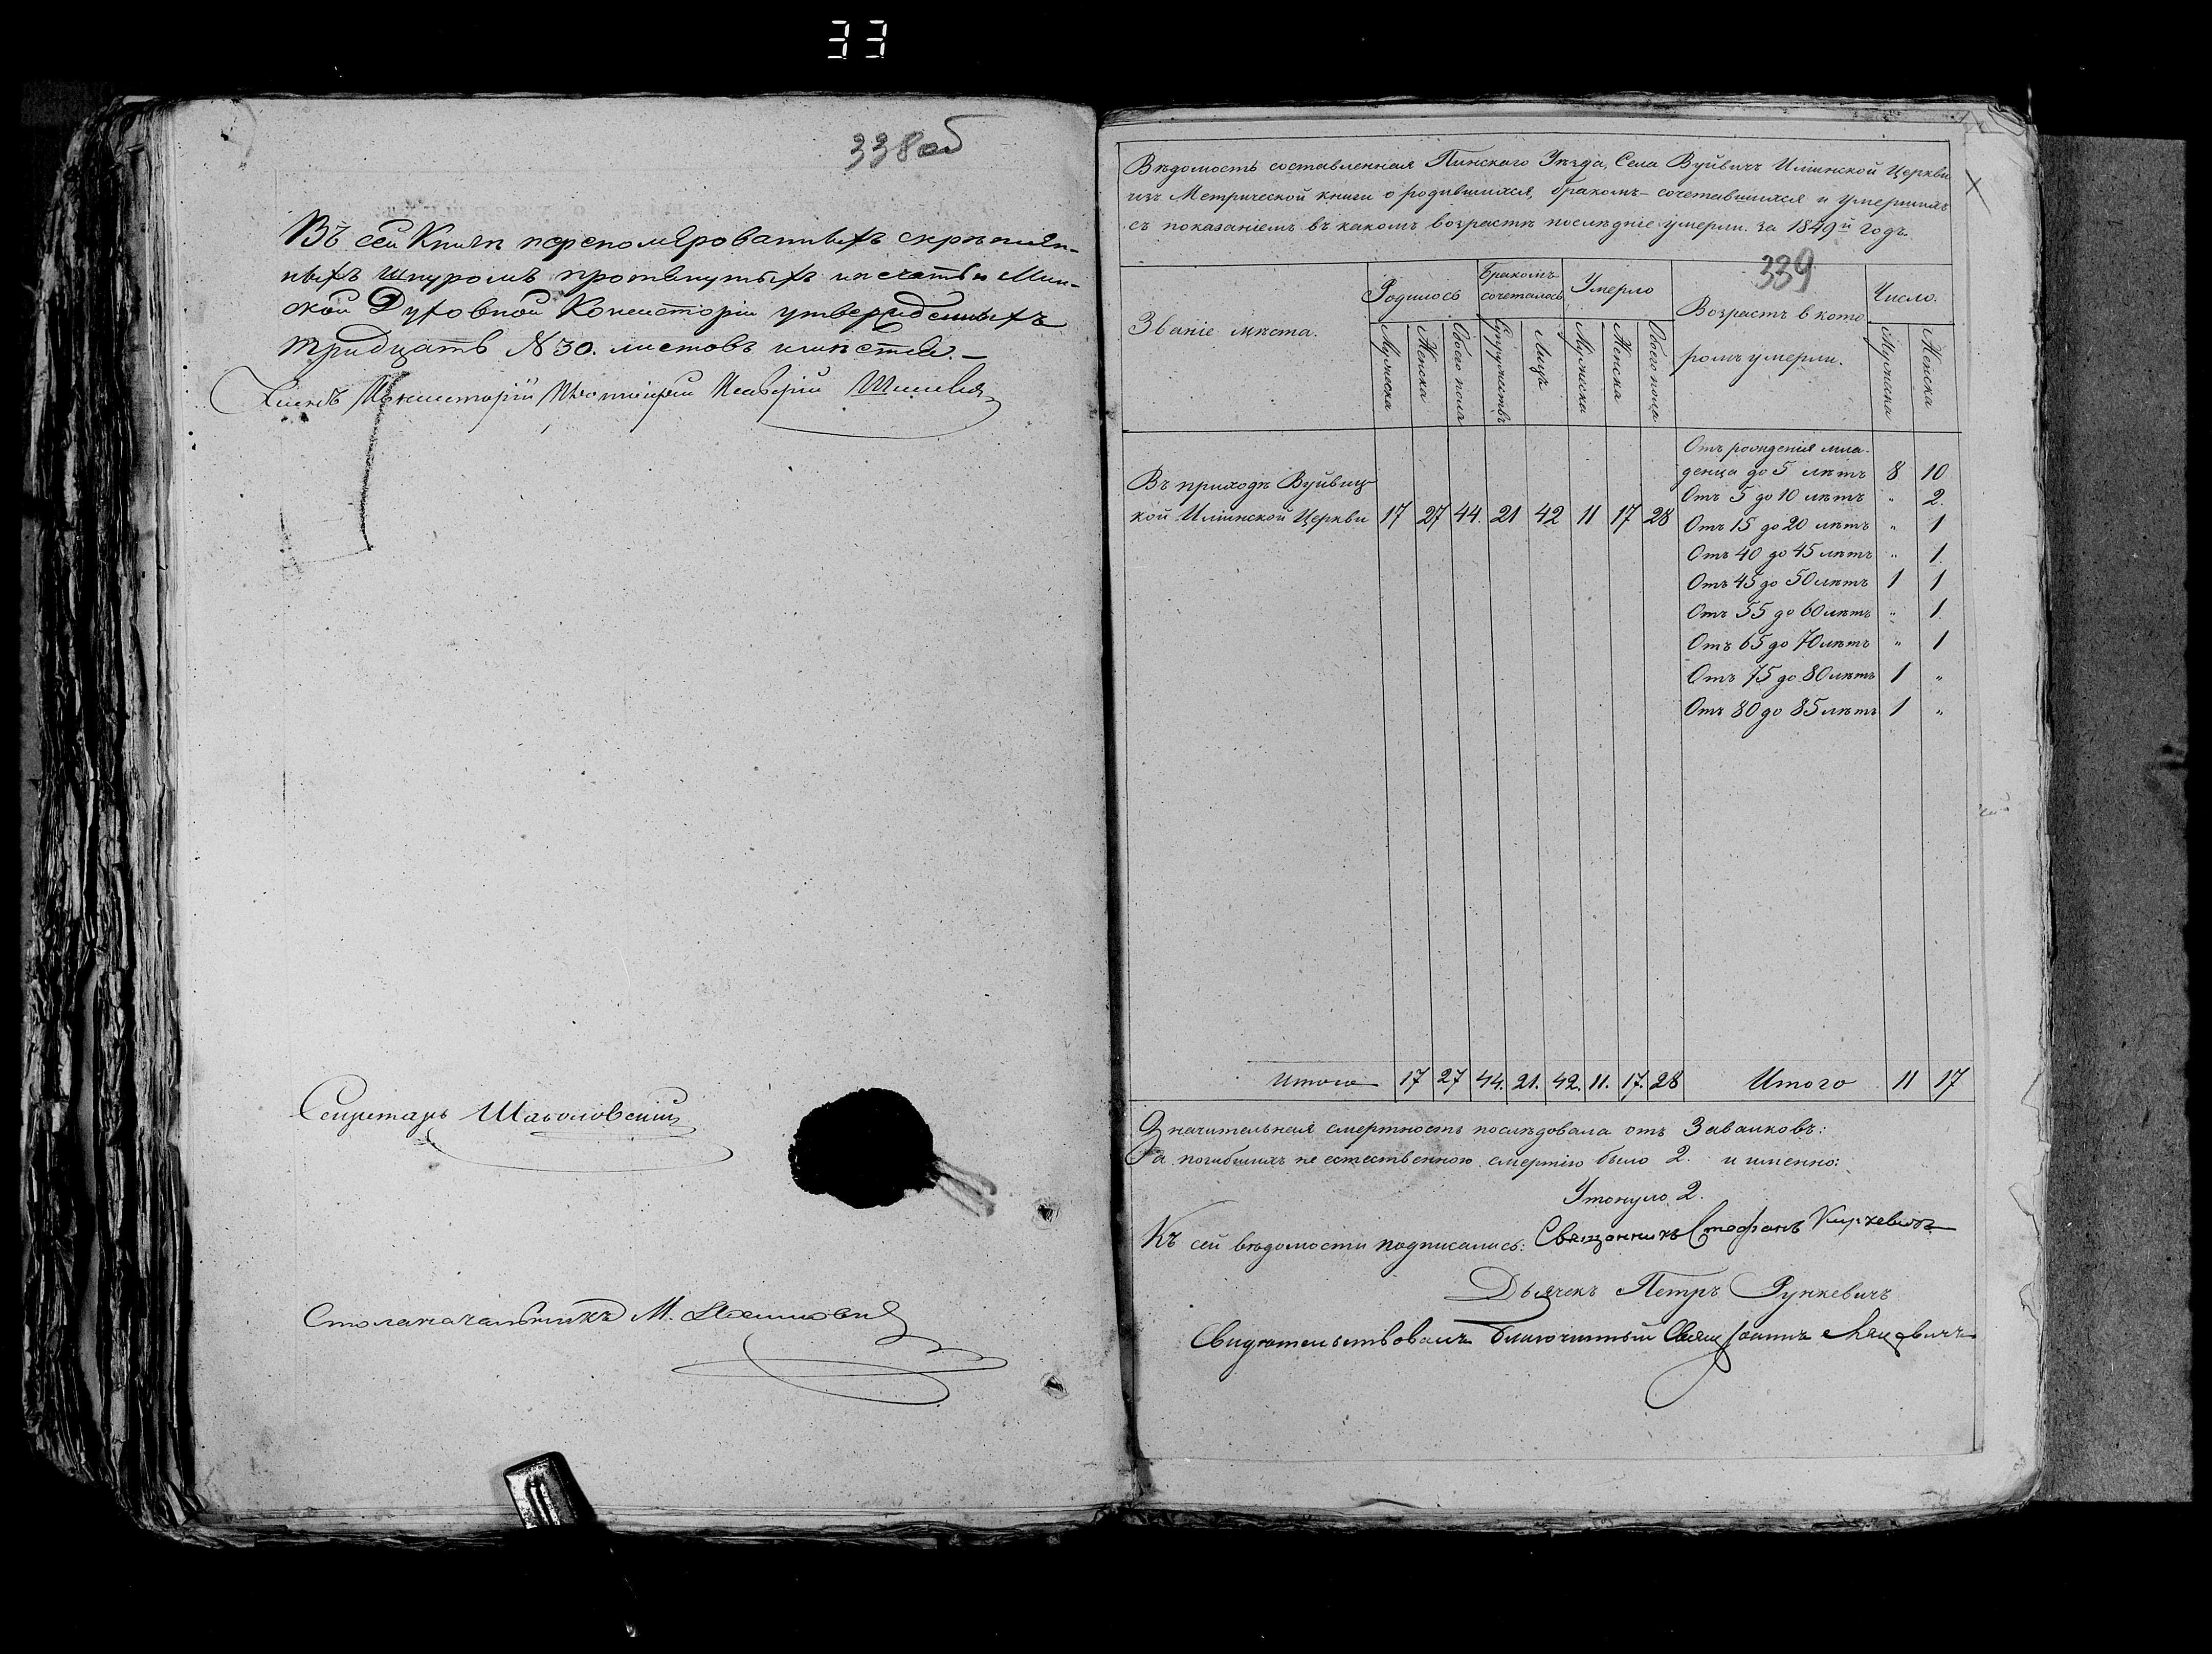 33
338об
Въ сей Книгѣ перепомѣрованныхъ скрѣплен-
ныхъ шнуромъ протянутыхъ и печатью Мин-
ской Духовной Консисторіи утвержденныхъ
тридцать N 30. листовъ имѣется.-
Членъ Консисторіи Протоіерей
Секретарь
Столоначальникъ М.
Вѣдомость составленная Пинскаго Уѣзда, Села Вуйвичъ Иліинской Церкви
изъ Метрической книги о родившихся, бракомъ-сочетавшихся и умершихъ
съ показаніемъ въ какомъ возрастѣ послѣдніе умерли. За 1849й годъ.
339
Званіе мѣста.
Родилось
Бракомъ сочеталось
Умерло
Возрастъ въ кото-
ромъ умерли.
Число.
Мужеска
Женска
Обоего пола
Супружествъ
Лицъ
Мужеска
Женска
Обоего пола
Мужеска
Женска
Въ приходѣ Вуйвиц-
кой Иліинской Церкви 17 27 44. 21 42 11 17 28
Отъ рожденія мла-
денца до 5 лѣтъ 8 10
Отъ 5 до 10 лѣтъ " 2.
Отъ 15 до 20 лѣтъ " 1
Отъ 40 до 45 лѣтъ " 1.
Отъ 45 до 50 лѣтъ 1 1
Отъ 55 до 60 лѣтъ " 1.
Отъ 65 до 70 лѣтъ " 1
Отъ 75 до 80 лѣтъ 1 "
Отъ 80 до 85 лѣтъ 1 "
Итого 17 27 44. 21. 42. 11. 17. 28 Итого 11 17
Значительная смертность послѣдовала отъ Завалковъ:
а погибшихъ не естественною смертію было 2. и именно:
Утонуло 2.
Къ сей вѣдомости подписались: Священникъ Стефанъ Киркевичъ
Дьячекъ Петръ Рункевичъ
Свидѣтельствовалъ благочинный Свящ Іоаннъ